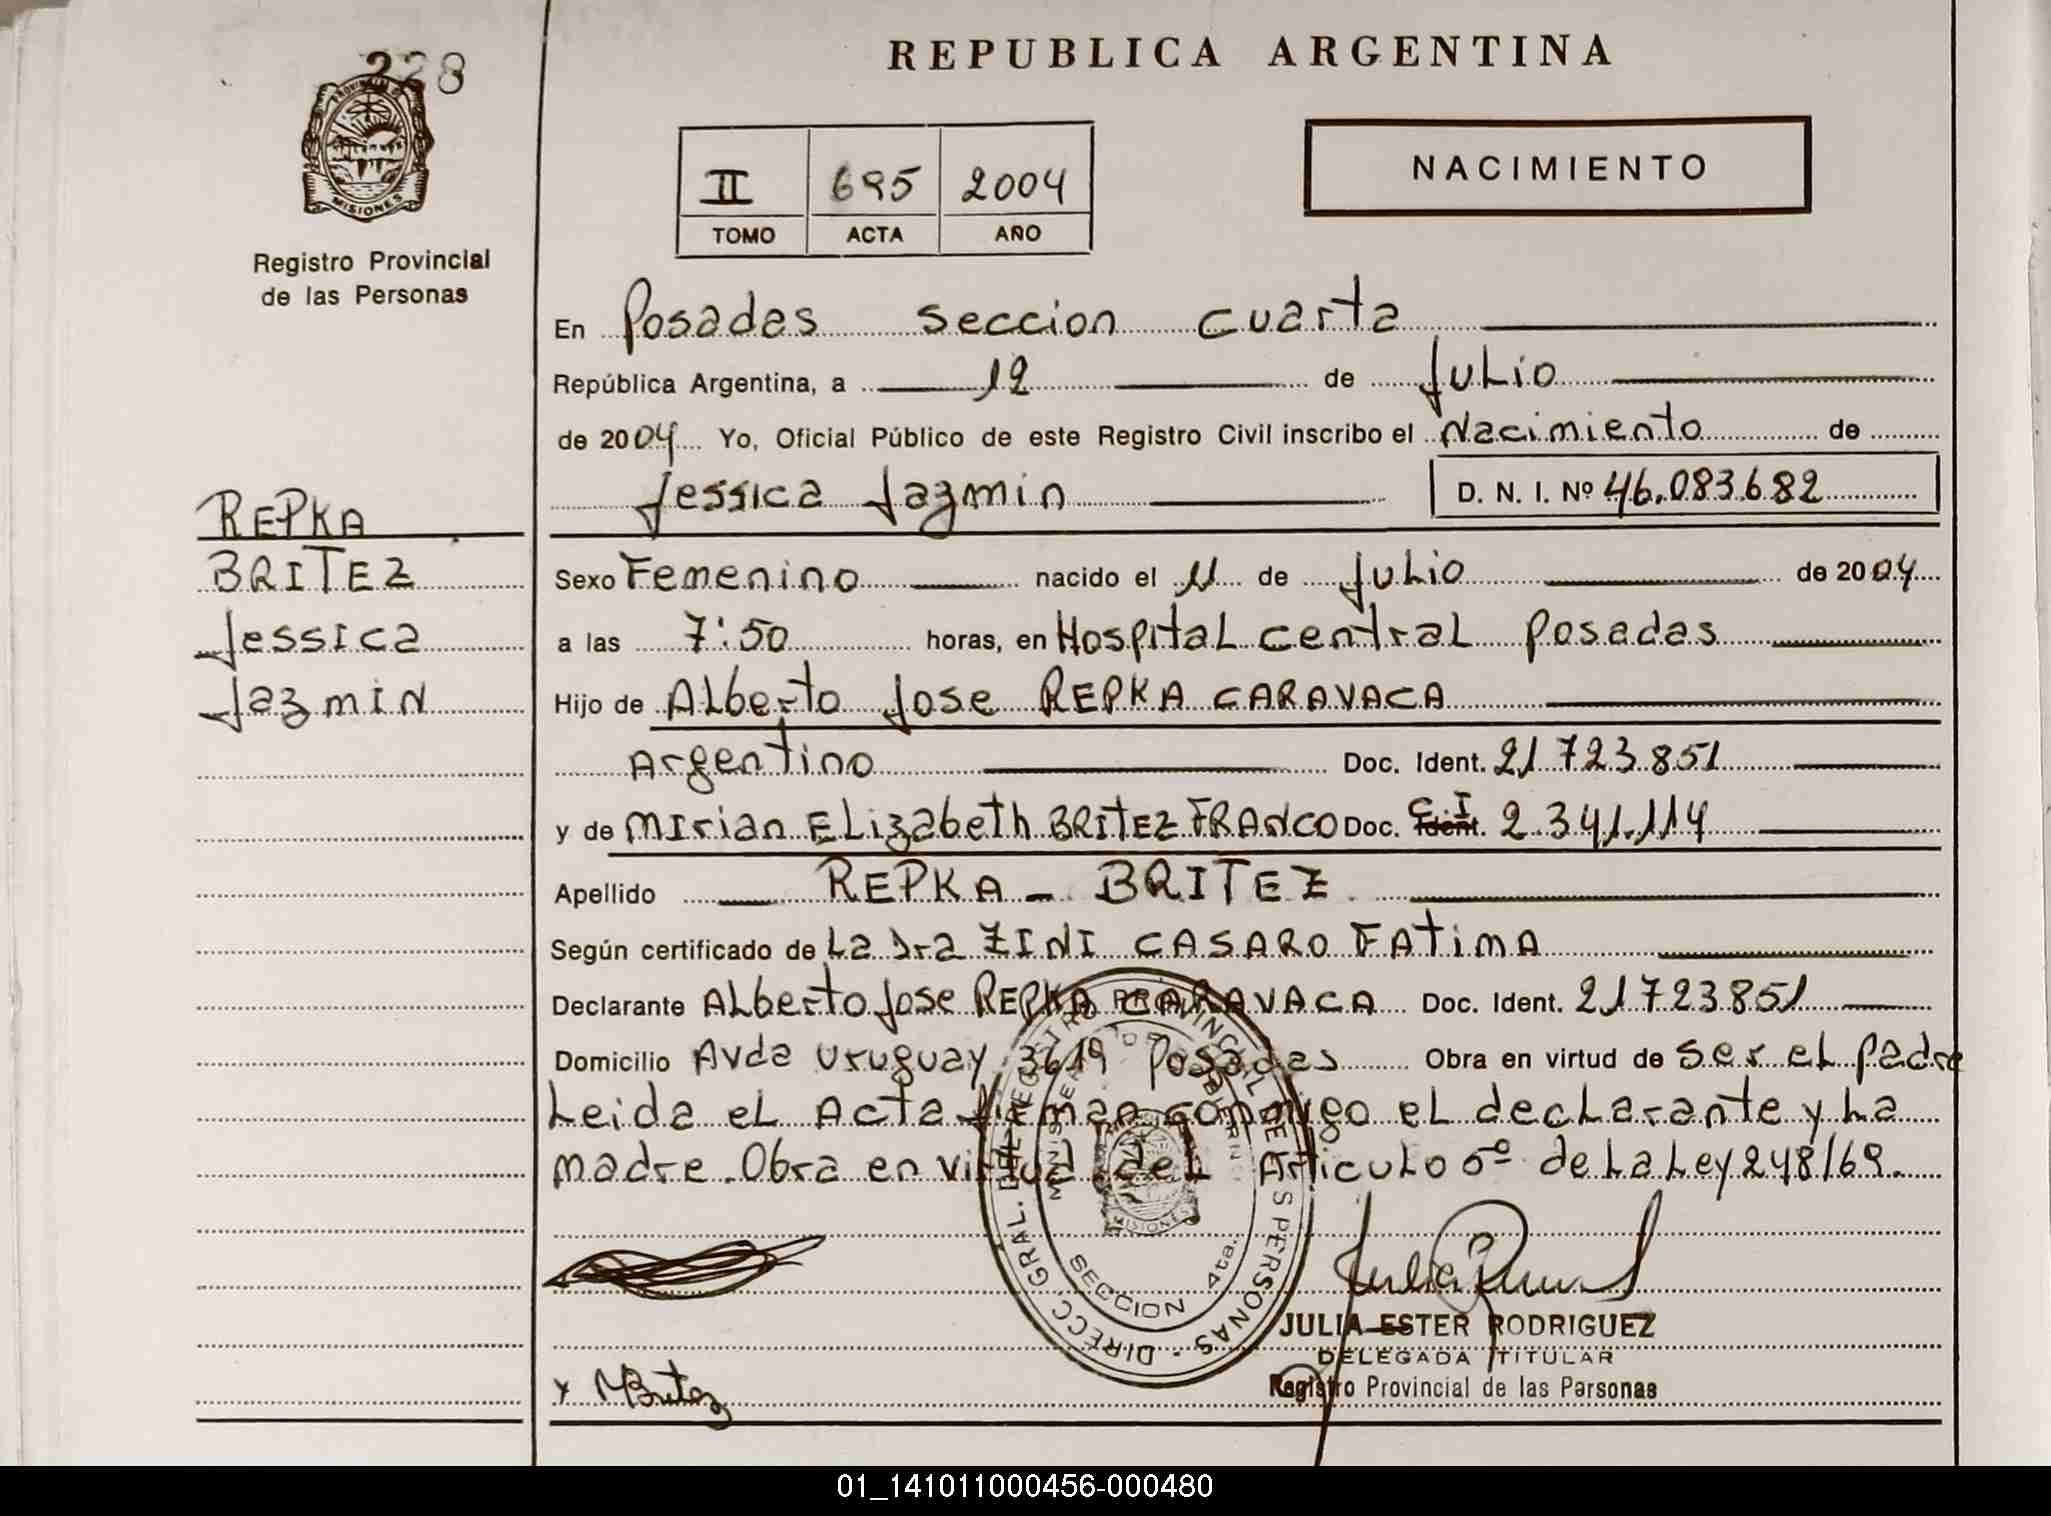 228
REPUBLICA ARGENTINA
NACIMIENTO
II 695 2004
TOMO ACTA AÑO
MISIONES
Registro Provincial
de las Personas
En Posadas seccion cuarta
República Argentina, a 12 de Julio
de 2004 Yo, Oficial Público de este Registro Civil inscribo el Nacimiento de
Jessica Jazmin D. N. I. Nº 46.083.682
REPKA
BRITEZ
Jessica
Jazmin
Sexo Femenino nacido el 11 de Julio de 2004
a las 7:50 horas, en Hospital central Posadas
Hijo de Alberto Jose REPKA CARAVACA
Argentino Doc. Ident. 21.723.851
y de Mirian Elizabeth BRITEZ FRANCO Doc. Ident. C.I 2.341.114
Apellido REPKA - BRITEZ
Según certificado de La Dra ZINI CASARO FATIMA
Declarante Alberto Jose REPKA CARAVACA Doc. Ident. 21.723.851
Domicilio Avda Uruguay 3619 Posadas Obra en virtud de ser el padre
Leida el Acta firman conmigo el declarante y La
madre. Obra en virtud del Articulo 6º de La Ley 248/69.
DIRECC. GRAL. DEL REGISTRO PROVINCIAL DE LAS PERSONAS
SECCION 4ta.
MISIONES
JULIA ESTER RODRIGUEZ
DELEGADA TITULAR
Registro Provincial de las Personas
x MBritez
01_141011000456-000480